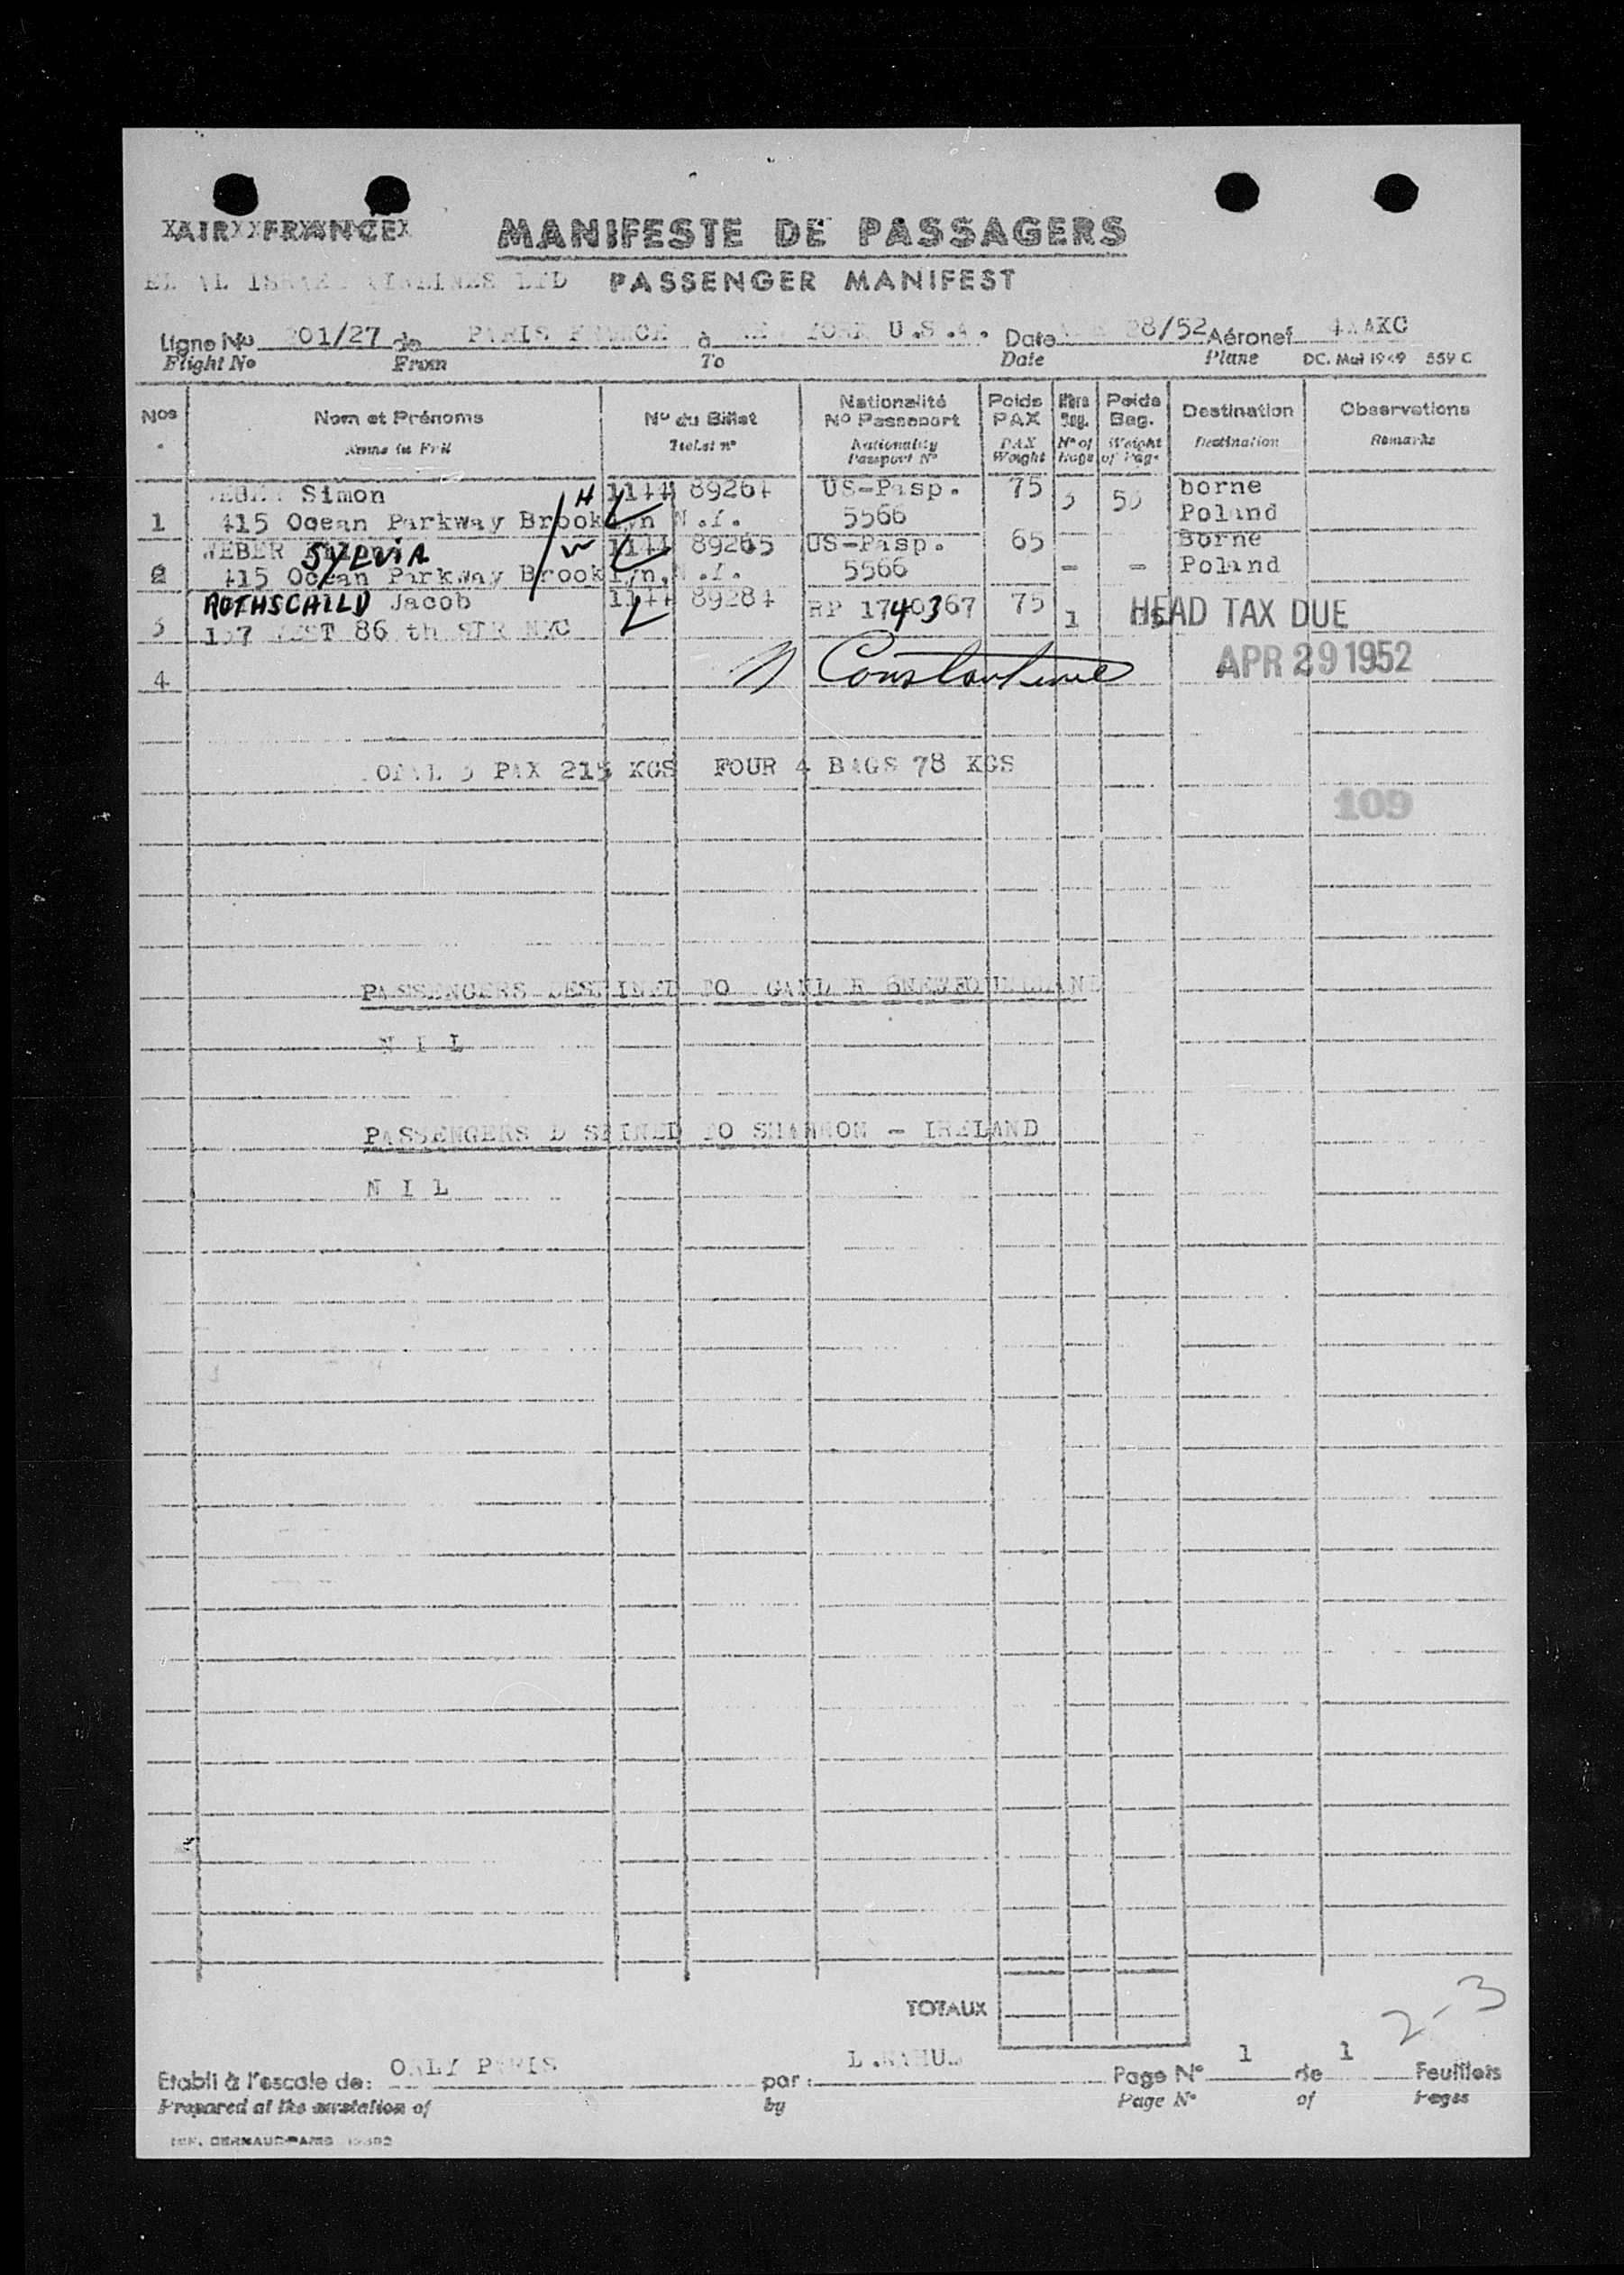 XAIRXXFRXNCEX MANIFESTE DE PASSAGERS
EL AL ISRAEL AIRLINES LTD PASSENGER MANIFEST
Ligne No 201/27 de PARIS FRANCE à NEW YORK U.S.A. Date 28/52 Aéronef 4XAKC
Flight No From To Date Plane DC. Mai 1949 559 C
Nos Nom et Prénoms No du Billet Nationalité No Passeport Poids PAX Nbre Bag. Poids Bag. Destination Observations
Name in Full Ticket no Nationality Passport No PAX Weight No of Bags Weight of Bags Destination Remarks
WEBER Simon H 1144 89264 US-Pasp. 75 3 borne
1 415 Ocean Parkway Brooklyn N.Y. 5566 Poland
WEBER SYLVIA W 1144 89265 US-Pasp. 65 Borne
2 415 Ocean Parkway Brooklyn, N.Y. 5566 - - Poland
ROTHSCHILD Jacob 1144 89284 RP 1740367 75 1 HEAD TAX DUE
3 157 WEST 86 th STR NYC
4 Constantine APR 29 1952
TOTAL 3 PAX 215 KGS FOUR 4 BAGS 78 KGS
109
PASSENGERS DESTINED TO GANDER NEWFOUNDLAND
N I L
PASSENGERS DESTINED TO SHANNON - IRELAND
N I L
TOTAUX
2-3
Etabli à l'escale de: ORLY PARIS par: Page No 1 de 1 Feuillets
Prepared at the station of by Page No of Pages
IMP. CERNAUD-PARIS